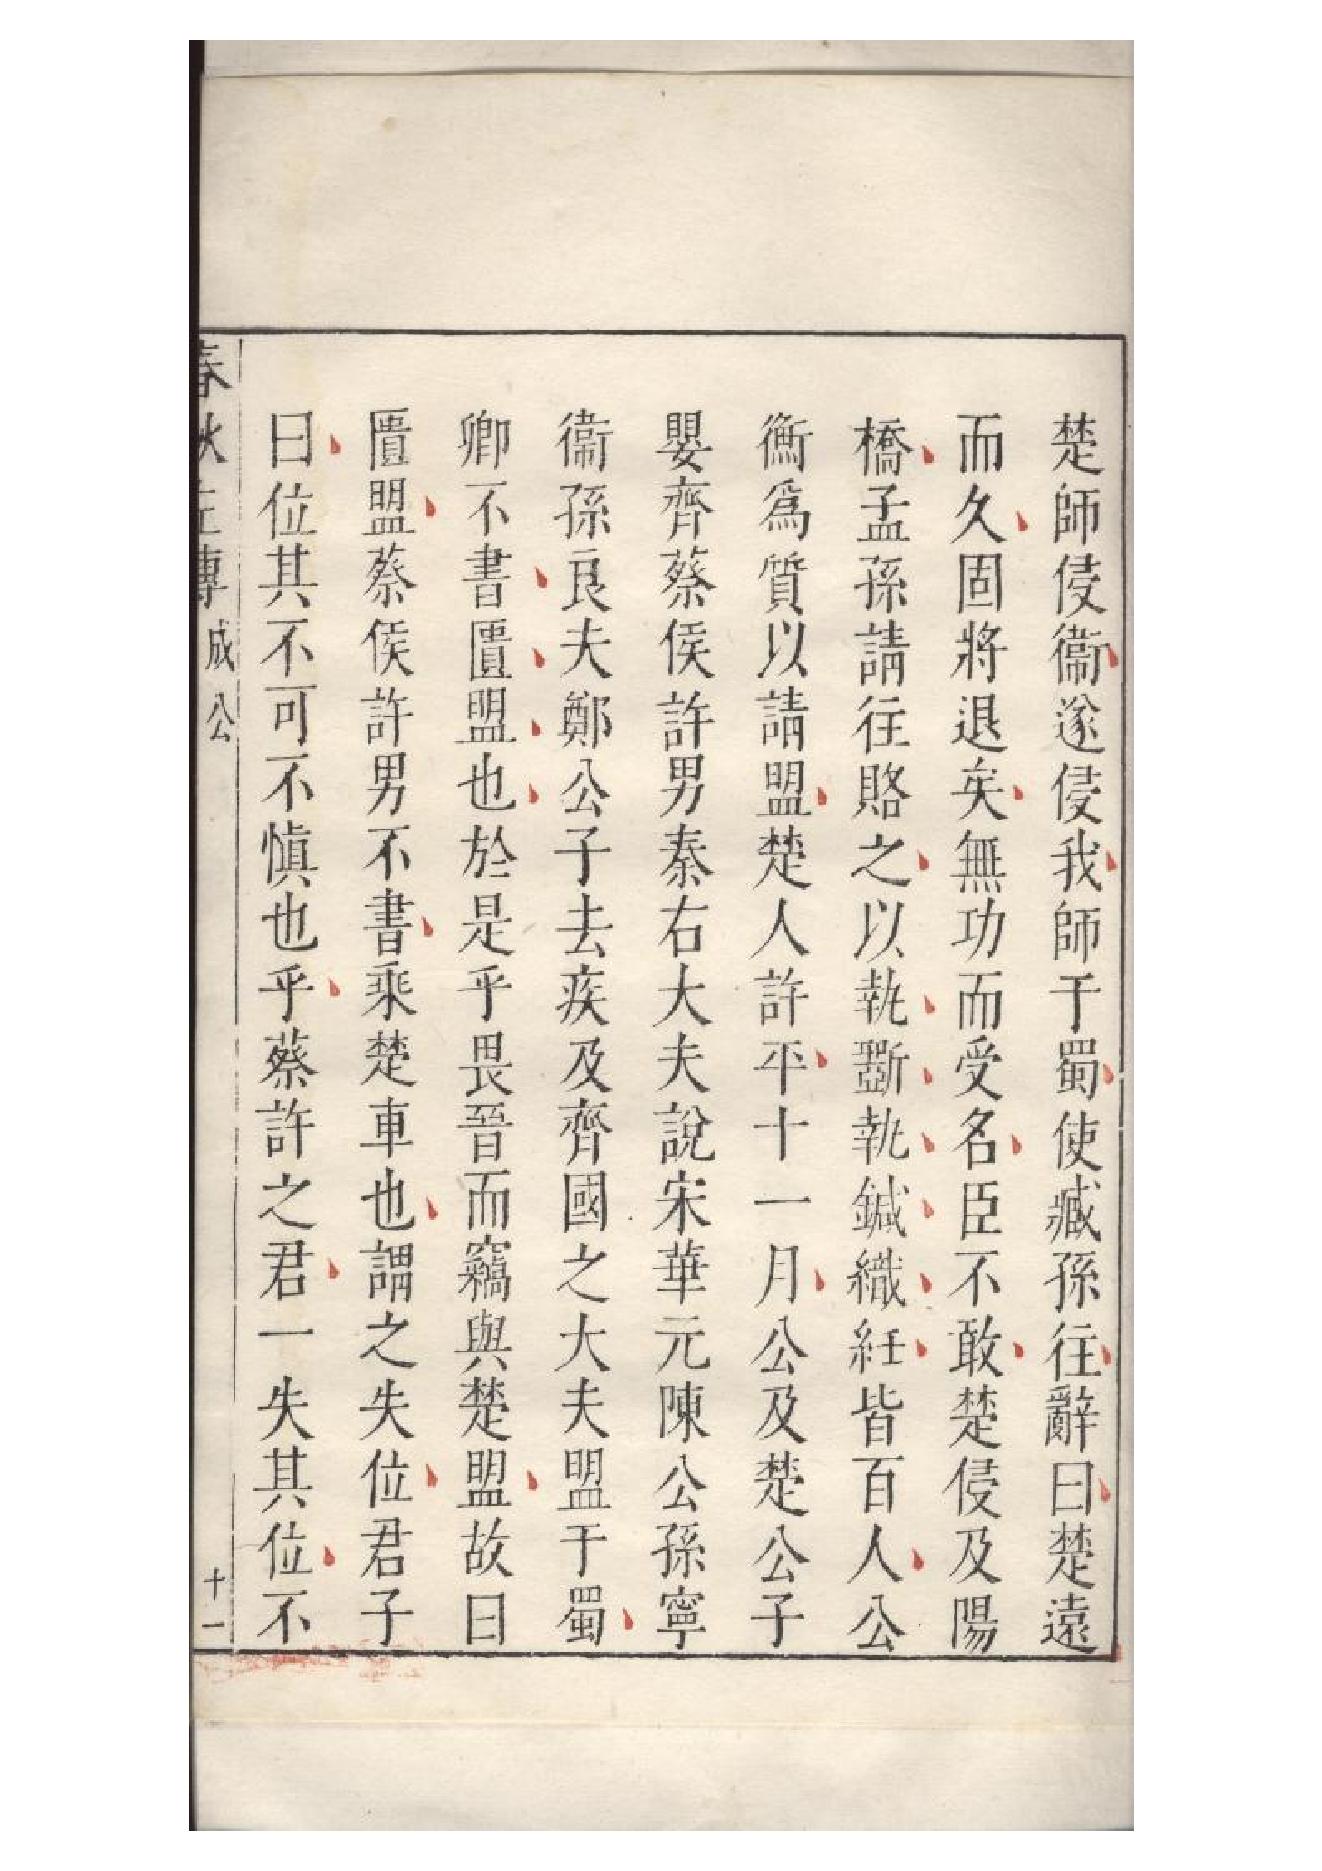 楚師侵衞遂侵我師于蜀使臧孫往辭曰楚遠
而久固將退矣無功而受名臣不敢楚侵及陽
橋孟孫請往賂之以執斲執鍼織紝皆百人公
衡爲質以請盟楚人許平十一月公及楚公子
嬰齊蔡侯許男秦右大夫說宋華元陳公孫寧
衞孫良夫鄭公子去疾及齊國之大夫盟于蜀
卿不書匱盟也於是乎畏晉而竊與楚盟故曰
匱盟蔡侯許男不書乘楚車也謂之失位君子
曰位其不可不愼也乎蔡許之君一失其位不
春秋左傳 成公 十一